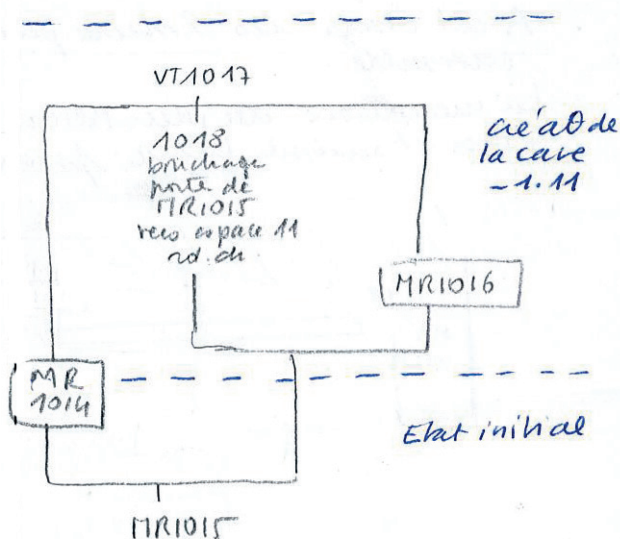 VT1017
1018
bouchage
porte de
MR1015
vers espace 11
rd. ch
créaθ de
la cave
-1.11
MR1016
MR
1014
Etat initial
MR1015